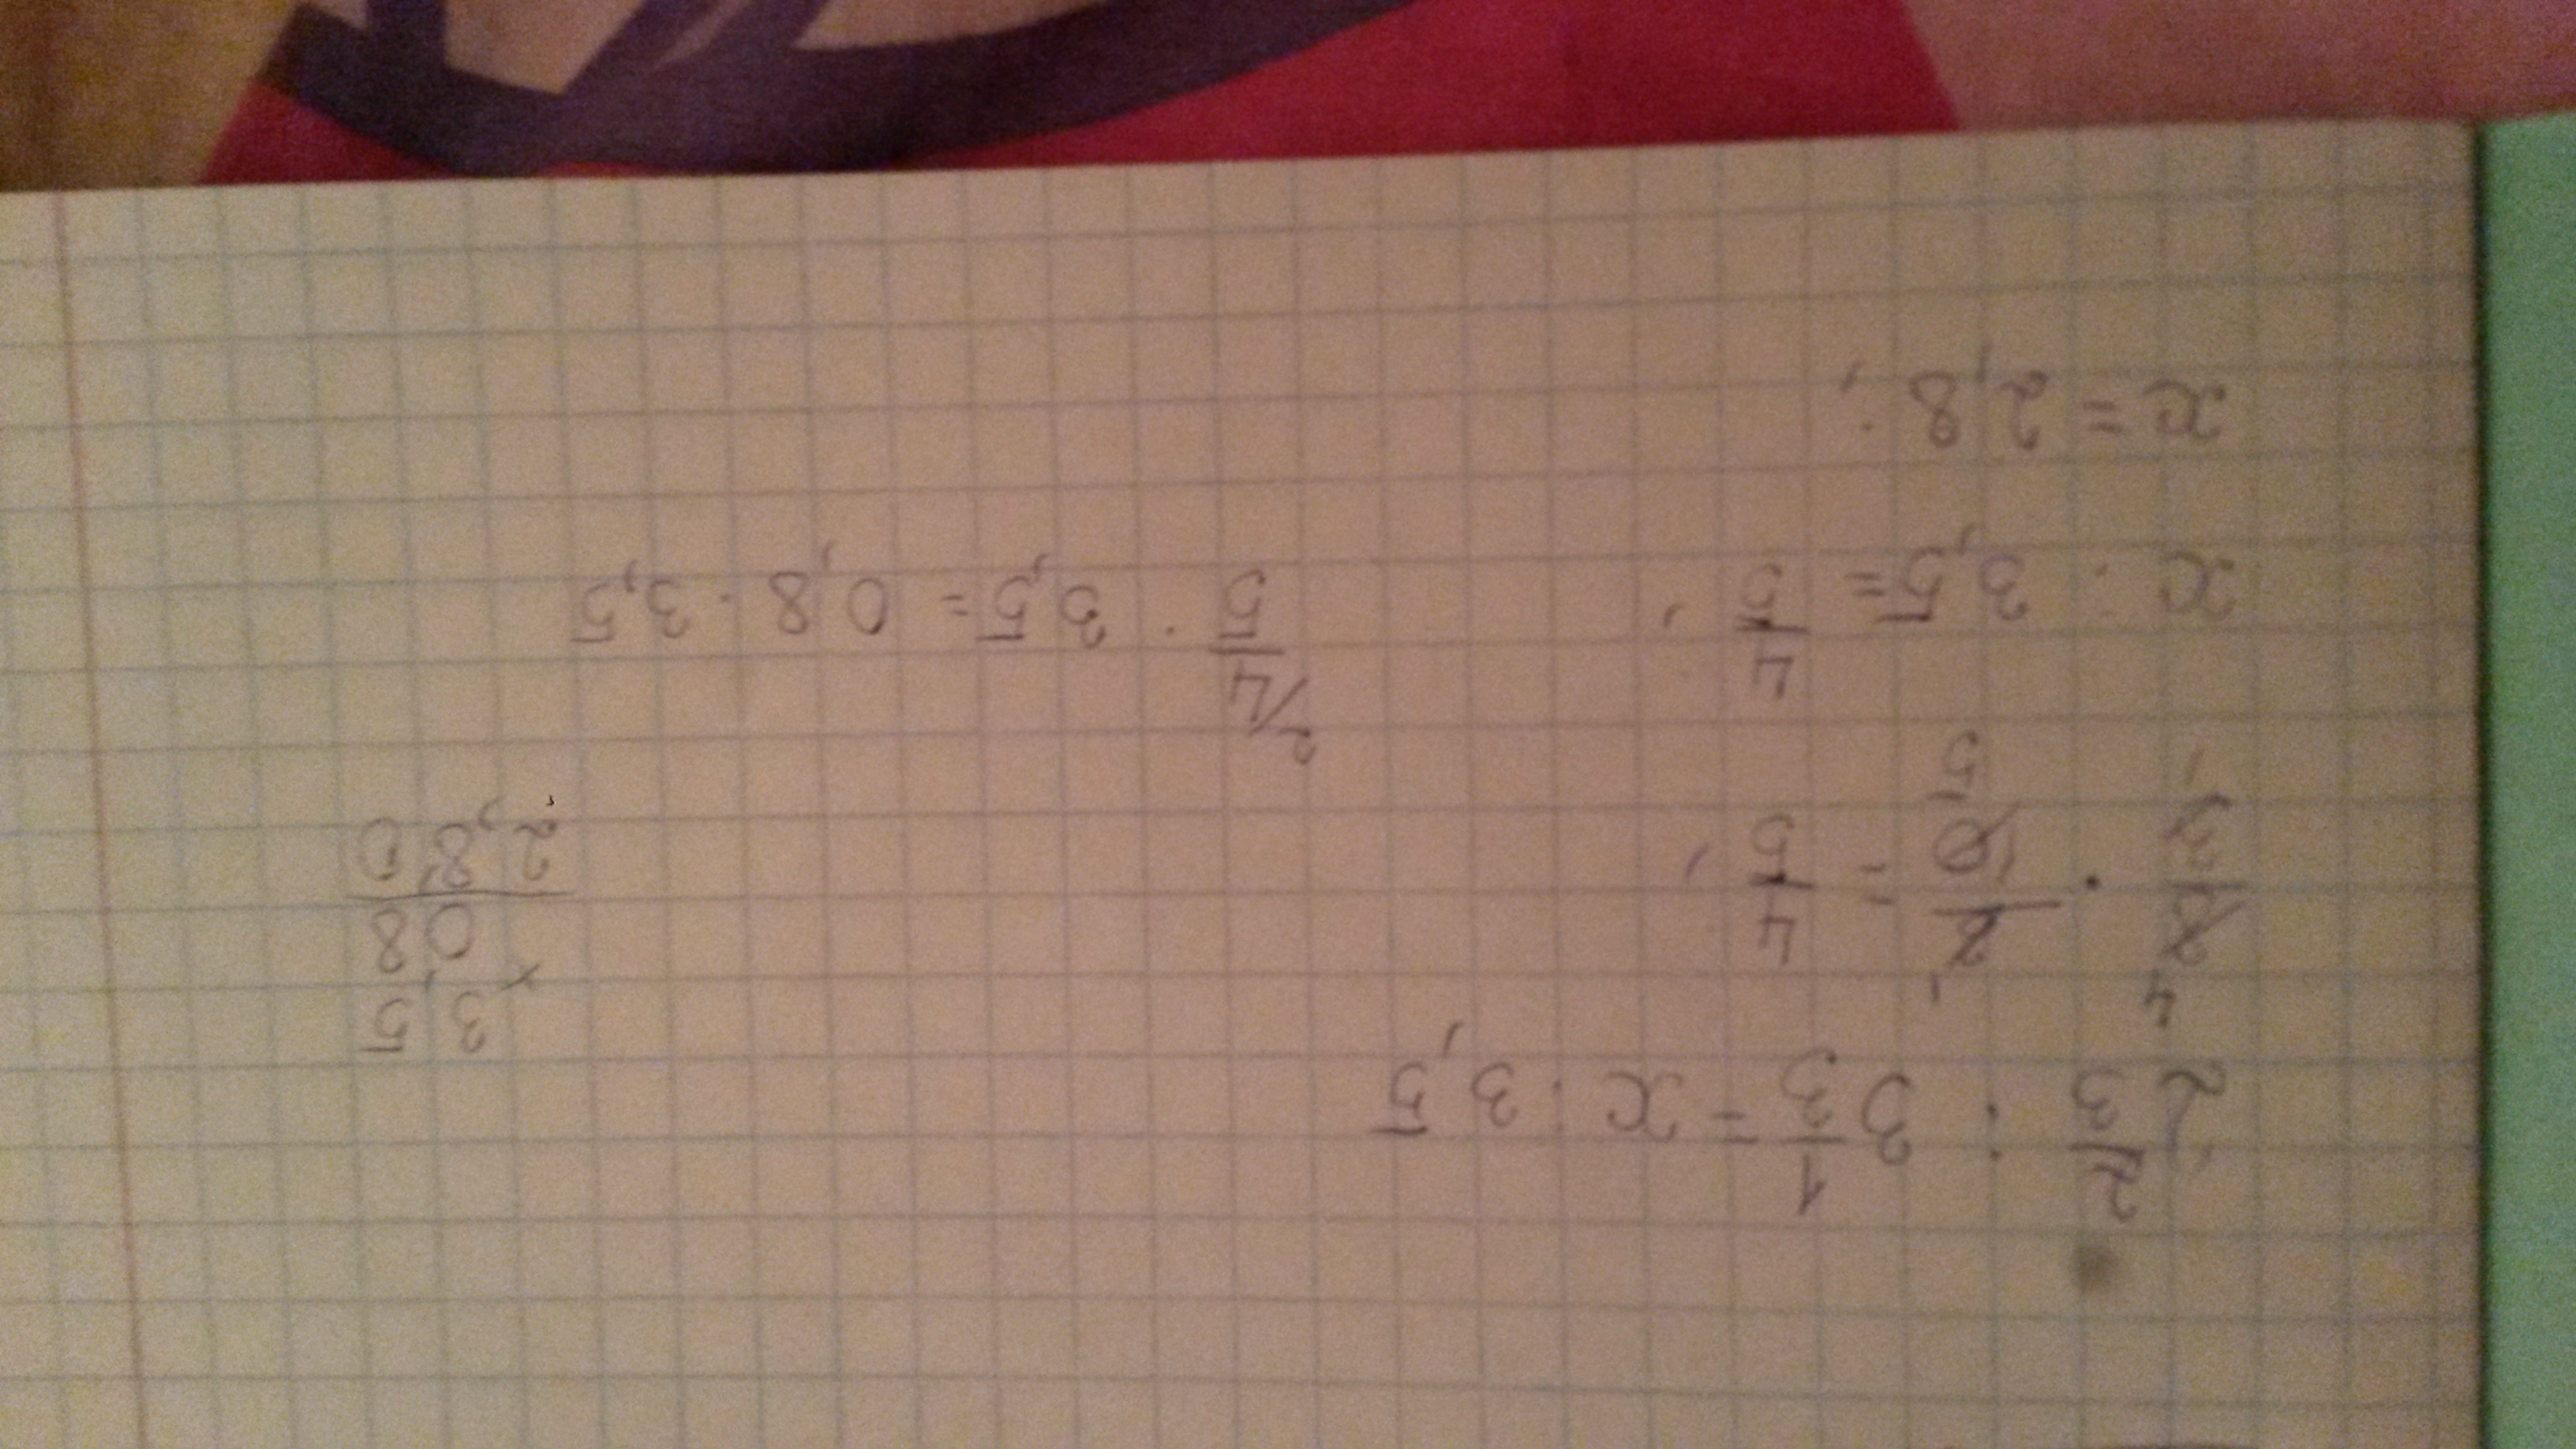 2 2/3 : 3 1/3 = x : 3,5
8/3 · 3/10 = 4/5 ;
4 1
1 5
x : 3,5 = 4/5 ;
4/5 · 3,5 = 0,8 · 3,5
2
x = 2,8 ;
× 3,5
0,8
2,80